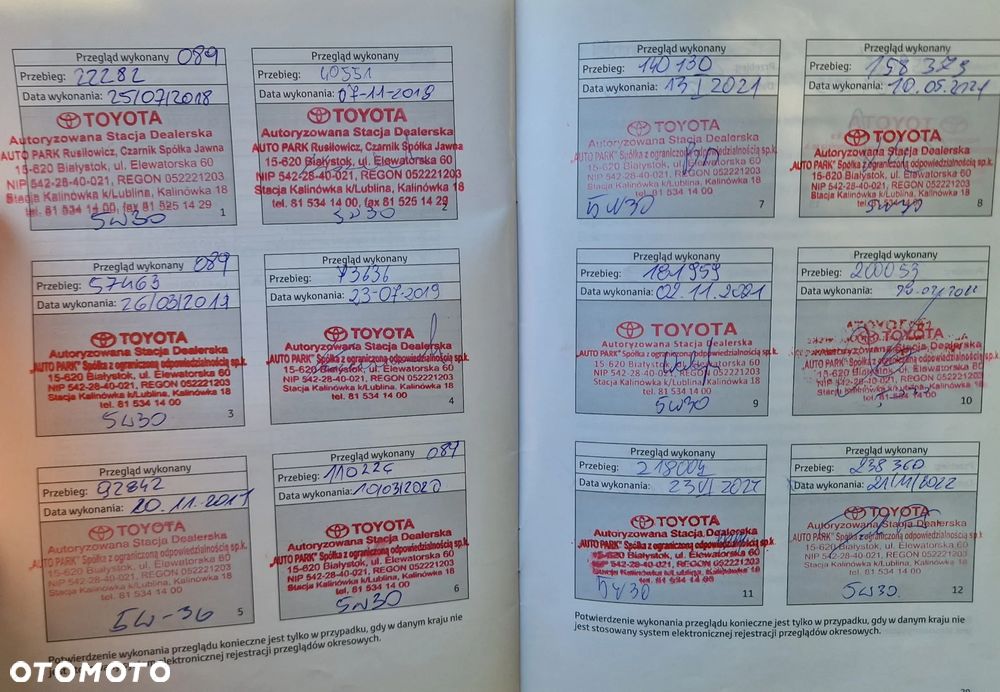 Przegląd wykonany 089
Przebieg: 22282
Data wykonania: 25/07/2018
TOYOTA
Autoryzowana Stacja Dealerska
AUTO PARK Rusiłowicz, Czarnik Spółka Jawna
15-620 Białystok, ul. Elewatorska 60
NIP 542-28-40-021, REGON 052221203
Stacja Kalinówka k/Lublina, Kalinówka 18
tel. 81 534 14 00, fax 81 525 14 29
5W30
1
Przegląd wykonany
Przebieg: 40551
Data wykonania: 07-11-2018
TOYOTA
Autoryzowana Stacja Dealerska
AUTO PARK Rusiłowicz, Czarnik Spółka Jawna
15-620 Białystok, ul. Elewatorska 60
NIP 542-28-40-021, REGON 052221203
Stacja Kalinówka k/Lublina, Kalinówka 18
tel. 81 534 14 00, fax 81 525 14 29
5W30
2
Przegląd wykonany 089
Przebieg: 57463
Data wykonania: 26/03/2019
TOYOTA
Autoryzowana Stacja Dealerska
„AUTO PARK" Spółka z ograniczoną odpowiedzialnością sp.k.
15-620 Białystok, ul. Elewatorska 60
NIP 542-28-40-021, REGON 052221203
Stacja Kalinówka k/Lublina, Kalinówka 18
tel. 81 534 14 00
5W30
3
Przegląd wykonany
Przebieg: 73636
Data wykonania: 23-07-2019
TOYOTA
Autoryzowana Stacja Dealerska
„AUTO PARK" Spółka z ograniczoną odpowiedzialnością sp.k.
15-620 Białystok, ul. Elewatorska 60
NIP 542-28-40-021, REGON 052221203
Stacja Kalinówka k/Lublina, Kalinówka 18
tel. 81 534 14 00
4
Przegląd wykonany
Przebieg: 92842
Data wykonania: 20.11.2019
TOYOTA
Autoryzowana Stacja Dealerska
„AUTO PARK" Spółka z ograniczoną odpowiedzialnością sp.k.
15-620 Białystok, ul. Elewatorska 60
NIP 542-28-40-021, REGON 052221203
Stacja Kalinówka k/Lublina, Kalinówka 18
tel. 81 534 14 00
5W-30
5
Przegląd wykonany 089
Przebieg: 110226
Data wykonania: 10/03/2020
TOYOTA
Autoryzowana Stacja Dealerska
„AUTO PARK" Spółka z ograniczoną odpowiedzialnością sp.k.
15-620 Białystok, ul. Elewatorska 60
NIP 542-28-40-021, REGON 052221203
Stacja Kalinówka k/Lublina, Kalinówka 18
tel. 81 534 14 00
5W30
6
Potwierdzenie wykonania przeglądu konieczne jest tylko w przypadku, gdy w danym kraju nie
jest stosowany system elektronicznej rejestracji przeglądów okresowych.
Przegląd wykonany
Przebieg: 140 130
Data wykonania: 13 I 2021
TOYOTA
Autoryzowana Stacja Dealerska
„AUTO PARK" Spółka z ograniczoną odpowiedzialnością sp.k.
15-620 Białystok, ul. Elewatorska 60
NIP 542-28-40-021, REGON 052221203
Stacja Kalinówka k/Lublina, Kalinówka 18
tel. 81 534 14 00
5W30
7
Przegląd wykonany
Przebieg: 158 373
Data wykonania: 10.05.2021
TOYOTA
Autoryzowana Stacja Dealerska
„AUTO PARK" Spółka z ograniczoną odpowiedzialnością sp.k.
15-620 Białystok, ul. Elewatorska 60
NIP 542-28-40-021, REGON 052221203
Stacja Kalinówka k/Lublina, Kalinówka 18
tel. 81 534 14 00
5W30
8
Przegląd wykonany
Przebieg: 181959
Data wykonania: 02.11.2021
TOYOTA
Autoryzowana Stacja Dealerska
„AUTO PARK" Spółka z ograniczoną odpowiedzialnością sp.k.
15-620 Białystok, ul. Elewatorska 60
NIP 542-28-40-021, REGON 052221203
Stacja Kalinówka k/Lublina, Kalinówka 18
tel. 81 534 14 00
5W30
9
Przegląd wykonany
Przebieg: 200053
Data wykonania:
TOYOTA
Autoryzowana Stacja Dealerska
„AUTO PARK" Spółka z ograniczoną odpowiedzialnością sp.k.
15-620 Białystok, ul. Elewatorska 60
NIP 542-28-40-021, REGON 052221203
Stacja Kalinówka k/Lublina, Kalinówka 18
tel. 81 534 14 00
10
Przegląd wykonany
Przebieg: 218004
Data wykonania: 23 VI 2022
TOYOTA
Autoryzowana Stacja Dealerska
„AUTO PARK" Spółka z ograniczoną odpowiedzialnością sp.k.
15-620 Białystok, ul. Elewatorska 60
NIP 542-28-40-021, REGON 052221203
Stacja Kalinówka k/Lublina, Kalinówka 18
tel. 81 534 14 00
5W30
11
Przegląd wykonany
Przebieg: 238 360
Data wykonania: 21/11/2022
TOYOTA
Autoryzowana Stacja Dealerska
„AUTO PARK" Spółka z ograniczoną odpowiedzialnością sp.k.
15-620 Białystok, ul. Elewatorska 60
NIP 542-28-40-021, REGON 052221203
Stacja Kalinówka k/Lublina, Kalinówka 18
tel. 81 534 14 00
5W30.
12
Potwierdzenie wykonania przeglądu konieczne jest tylko w przypadku, gdy w danym kraju nie
jest stosowany system elektronicznej rejestracji przeglądów okresowych.
OTOMOTO